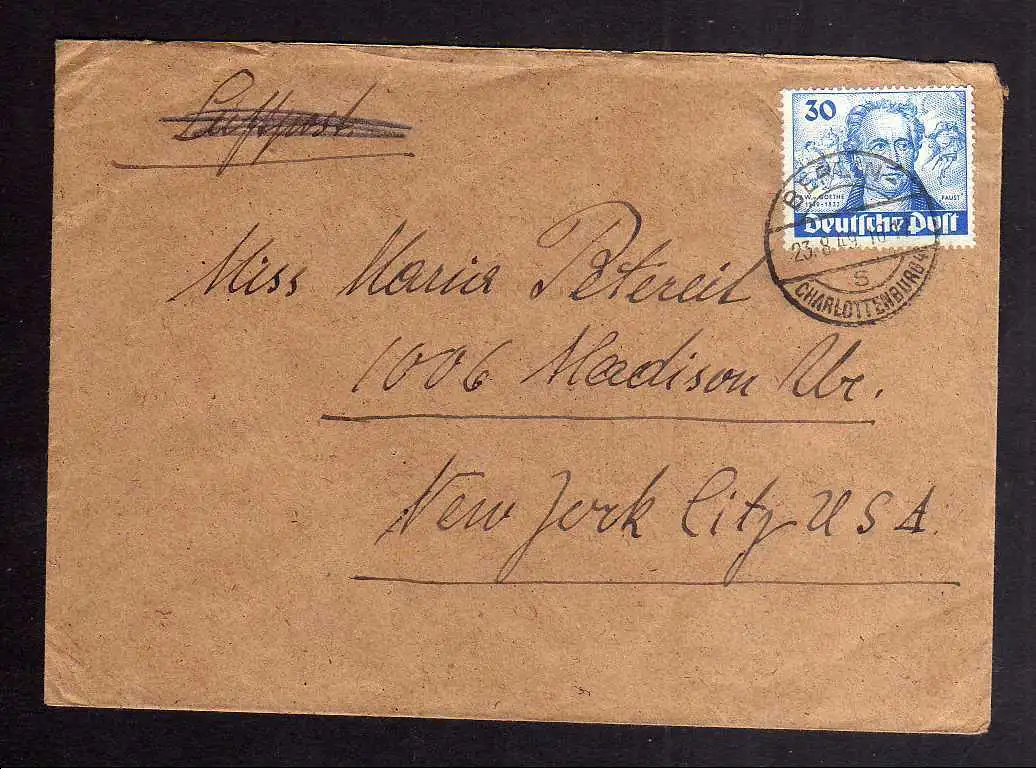 Luftpost.
30
J.W.v.GOETHE
1749-1832
FAUST
Deutsche Post
BERLIN-
23.8.49
S
CHARLOTTENBURG 4
Miss Maria Petereit
1006 Madison Av.
New York City USA